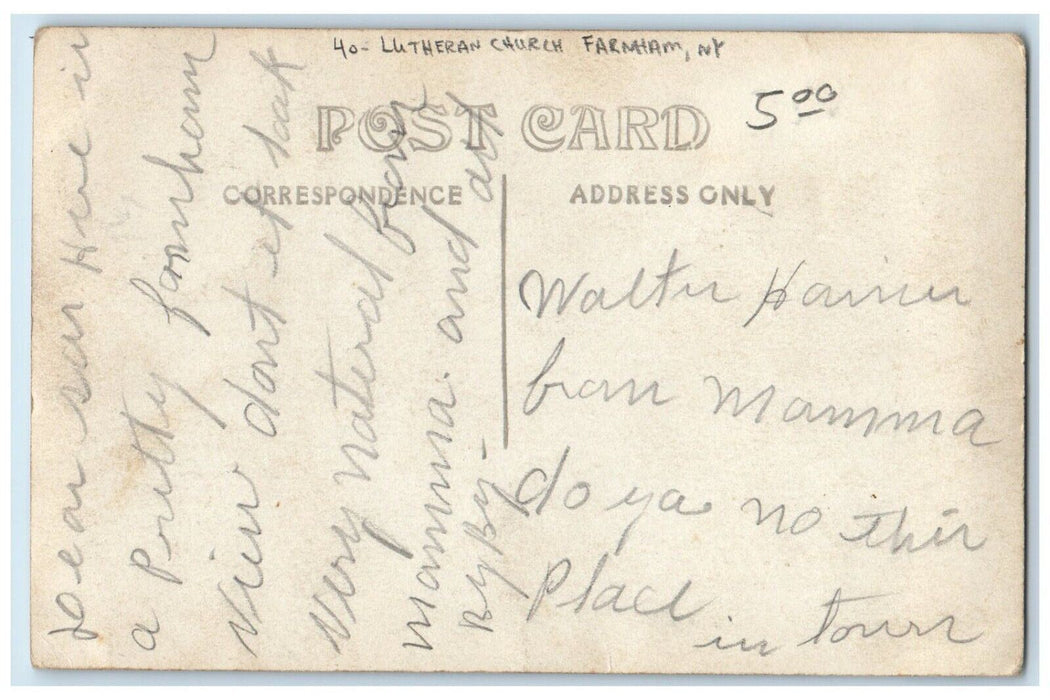 40- LUTHERAN CHURCH FARNHAM, NY
5.00
POST CARD
CORRESPONDENCE
ADDRESS ONLY
dear son Here is
a Pretty farnham
view dont it look
very natural from
mamma and all
By By-
Walter
from Mamma
do ya no this
Place
in town